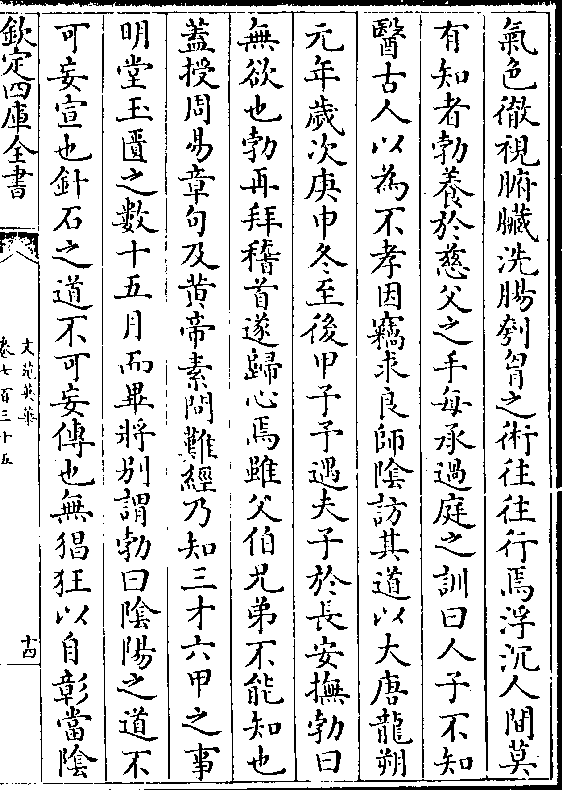 氣色徹視腑臟洗腸刳胷之術往往行焉浮沉人間莫
有知者勃養於慈父之手每承過庭之訓曰人子不知
醫古人以為不孝因竊求良師陰訪其道以大唐龍朔
元年歲次庚申冬至後甲子予遇夫子於長安撫勃曰
無欲也勃再拜稽首遂歸心焉雖父伯兄弟不能知也
蓋授周易章句及黄帝素問難經乃知三才六甲之事
明堂玉匱之數十五月而畢將别謂勃曰陰陽之道不
可妄宣也針石之道不可妄傳也無猖狂以自彰當陰
欽定四庫全書
文苑英華
卷七百三十五
十四